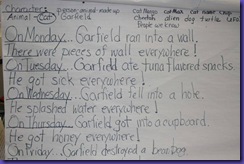 Characters: person, animal, made up
Animal - Cat Garfield
On Monday... Garfield ran into a wall.
There were pieces of wall everywhere!
On Tuesday... Garfield ate tuna flavored snacks.
He got sick everywhere!
On Wednesday... Garfield fell into a hole.
He splashed water everywhere!
On Thursday... Garfield got into a cupboard.
He got honey everywhere!
On Friday... Garfield destroyed a bean bag.